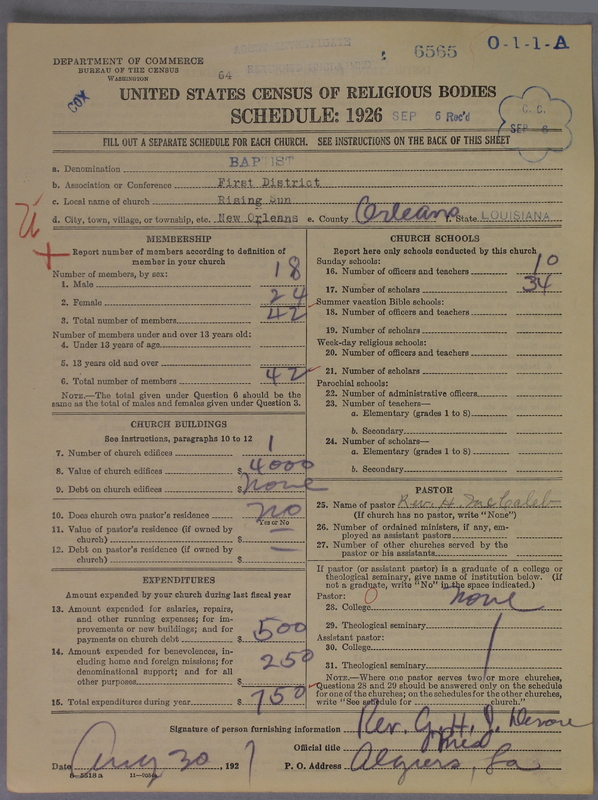 DEPARTMENT OF COMMERCE
BUREAU OF THE CENSUS
WASHINGTON
6565
O-1-1-A
COX
64
UNITED STATES CENSUS OF RELIGIOUS BODIES
SCHEDULE: 1926 SEP 6 Rec'd
C. C.
SEP 6
FILL OUT A SEPARATE SCHEDULE FOR EACH CHURCH. SEE INSTRUCTIONS ON THE BACK OF THIS SHEET
a. Denomination BAPTIST
b. Association or Conference First District
c. Local name of church Rising Sun
d. City, town, village, or township, etc. New Orleans e. County Orleans f. State LOUISIANA
MEMBERSHIP
Report number of members according to definition of member in your church
Number of members, by sex:
1. Male 18
2. Female 24
3. Total number of members 42
Number of members under and over 13 years old:
4. Under 13 years of age
5. 13 years old and over
6. Total number of members 42
NOTE.—The total given under Question 6 should be the same as the total of males and females given under Question 3.
CHURCH BUILDINGS
See instructions, paragraphs 10 to 12
7. Number of church edifices 1
8. Value of church edifices $ 4000
9. Debt on church edifices $ None
10. Does church own pastor's residence no
Yes or No
11. Value of pastor's residence (if owned by church) $ —
12. Debt on pastor's residence (if owned by church) $ —
EXPENDITURES
Amount expended by your church during last fiscal year
13. Amount expended for salaries, repairs, and other running expenses; for improvements or new buildings; and for payments on church debt $ 500
14. Amount expended for benevolences, including home and foreign missions; for denominational support; and for all other purposes $ 250
15. Total expenditures during year $ 750
CHURCH SCHOOLS
Report here only schools conducted by this church
Sunday schools:
16. Number of officers and teachers 10
17. Number of scholars 34
Summer vacation Bible schools:
18. Number of officers and teachers
19. Number of scholars
Week-day religious schools:
20. Number of officers and teachers
21. Number of scholars
Parochial schools:
22. Number of administrative officers
23. Number of teachers—
a. Elementary (grades 1 to 8)
b. Secondary
24. Number of scholars—
a. Elementary (grades 1 to 8)
b. Secondary
PASTOR
25. Name of pastor Rev. H. McCaleb
(If church has no pastor, write "None")
26. Number of ordained ministers, if any, employed as assistant pastors
27. Number of other churches served by the pastor or his assistants
If pastor (or assistant pastor) is a graduate of a college or theological seminary, give name of institution below. (If not a graduate, write "No" in the space indicated.)
Pastor: none
28. College
29. Theological seminary
Assistant pastor:
30. College
31. Theological seminary
NOTE.—Where one pastor serves two or more churches, Questions 28 and 29 should be answered only on the schedule for one of the churches; on the schedules for the other churches, write "See schedule for church."
Signature of person furnishing information Rev. G. H. J. Devore
Official title Pres
Date Aug 30, 1927 P. O. Address Algiers, La
8—5518 a 11—9051